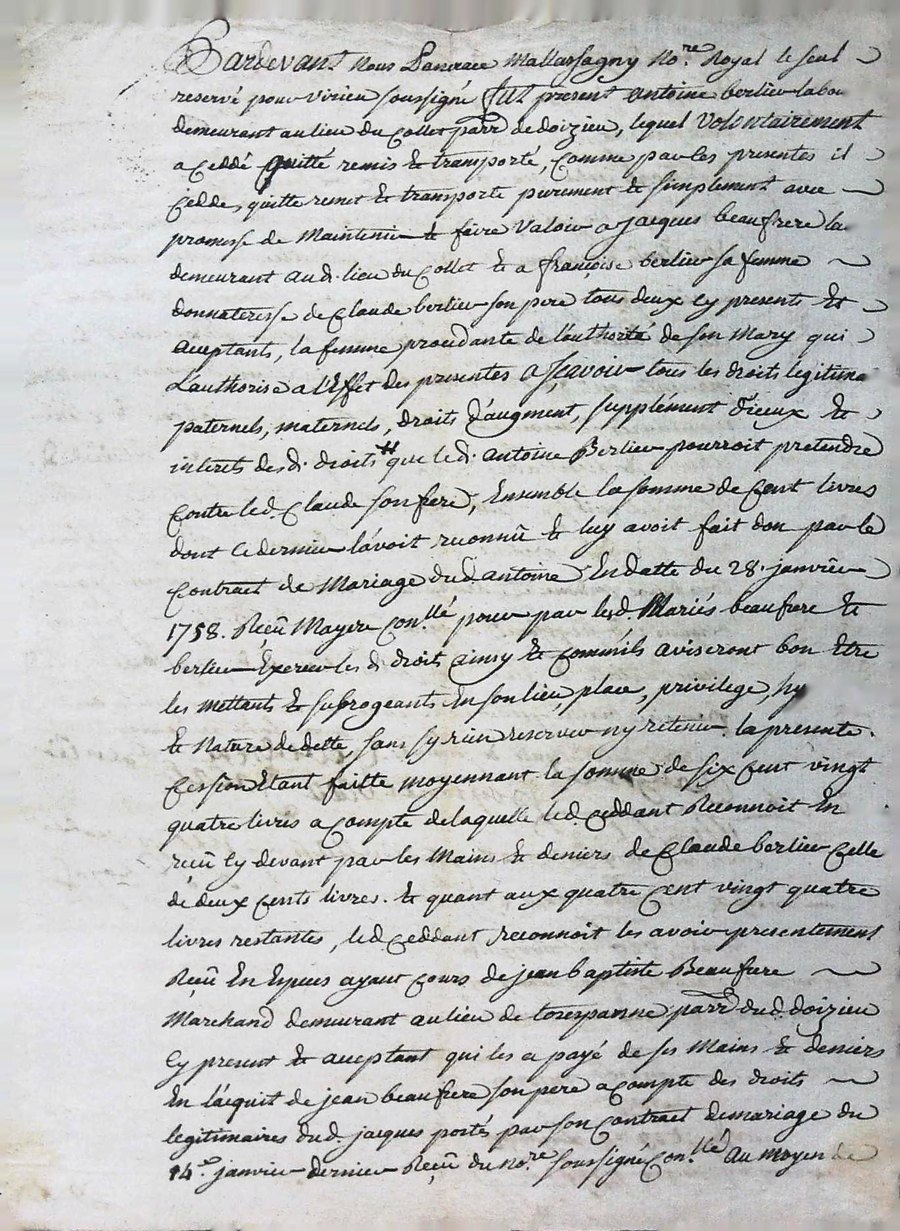 Pardevant Nous Mallassagny No.re Royal le seul
reservé pour Virieu soussigné fut present antoine berlier labou
demeurant au lieu du Collet parr. de doizieu, lequel Volontairement
a Ceddé quitté remis et transporté, Comme par les presentes il
Cedde, quitte remet et transporte purement et simplement avec
promesse de Maintenir et faire Valoir a jacques beaufrere la
demeurant aud. lieu du Collet et a françoise berlier sa femme
donnateresse de Claude berlier son pere tous deux Cy presents et
aceptants, la femme procedante de l'authorité de son Mary qui
L'authorise a l'Effet des presentes a scavoir tous les droits legitima
paternels, maternels, droits d'augment, supplément d'iceux et
interets desd. droits que led. antoine Berlier pourroit pretendre
Contre led. Claude son frere, Ensemble la somme de Cent livres
dont Ce dernier l'avoit reconnû et luy avoit fait don par le
Contract de Mariage dud. antoine En datte du 28. janvier
1758. Reçû Mayere Con.llé pour par lesd. Mariés beaufrere et
berlier Exercer lesd. droit ainsy et Comm'ils aviseront bon Etre
les mettants et subrogeants En son lieu, place, privilege, hy
et Nature de dette, sans sy rien reserver ny retenir. la presente
Cession Etant faitte moyennant la somme de six Cent vingt
quatre livres a Compte de laquelle led. Ceddant Reconnoit En
reçû Cy devant par les Mains et deniers de Claude berlier Celle
de deux Cents livres. et quant aux quatre Cent vingt quatre
livres restantes, led. Ceddant reconnoit les avoir presentement
Reçû En Espices ayant Cours de jean baptiste Beaufrere
Marchand demeurant au lieu de parr. dud. doizieu
Cy present et aceptant qui les a payé de ses Mains et deniers
En l'acquit de jean beaufrere son pere a Compte des droits
legitimaires dud. jacques portés par son Contract de mariage du
14.e janvier dernier Reçû du No.re soussigné Con.llé au moyen de